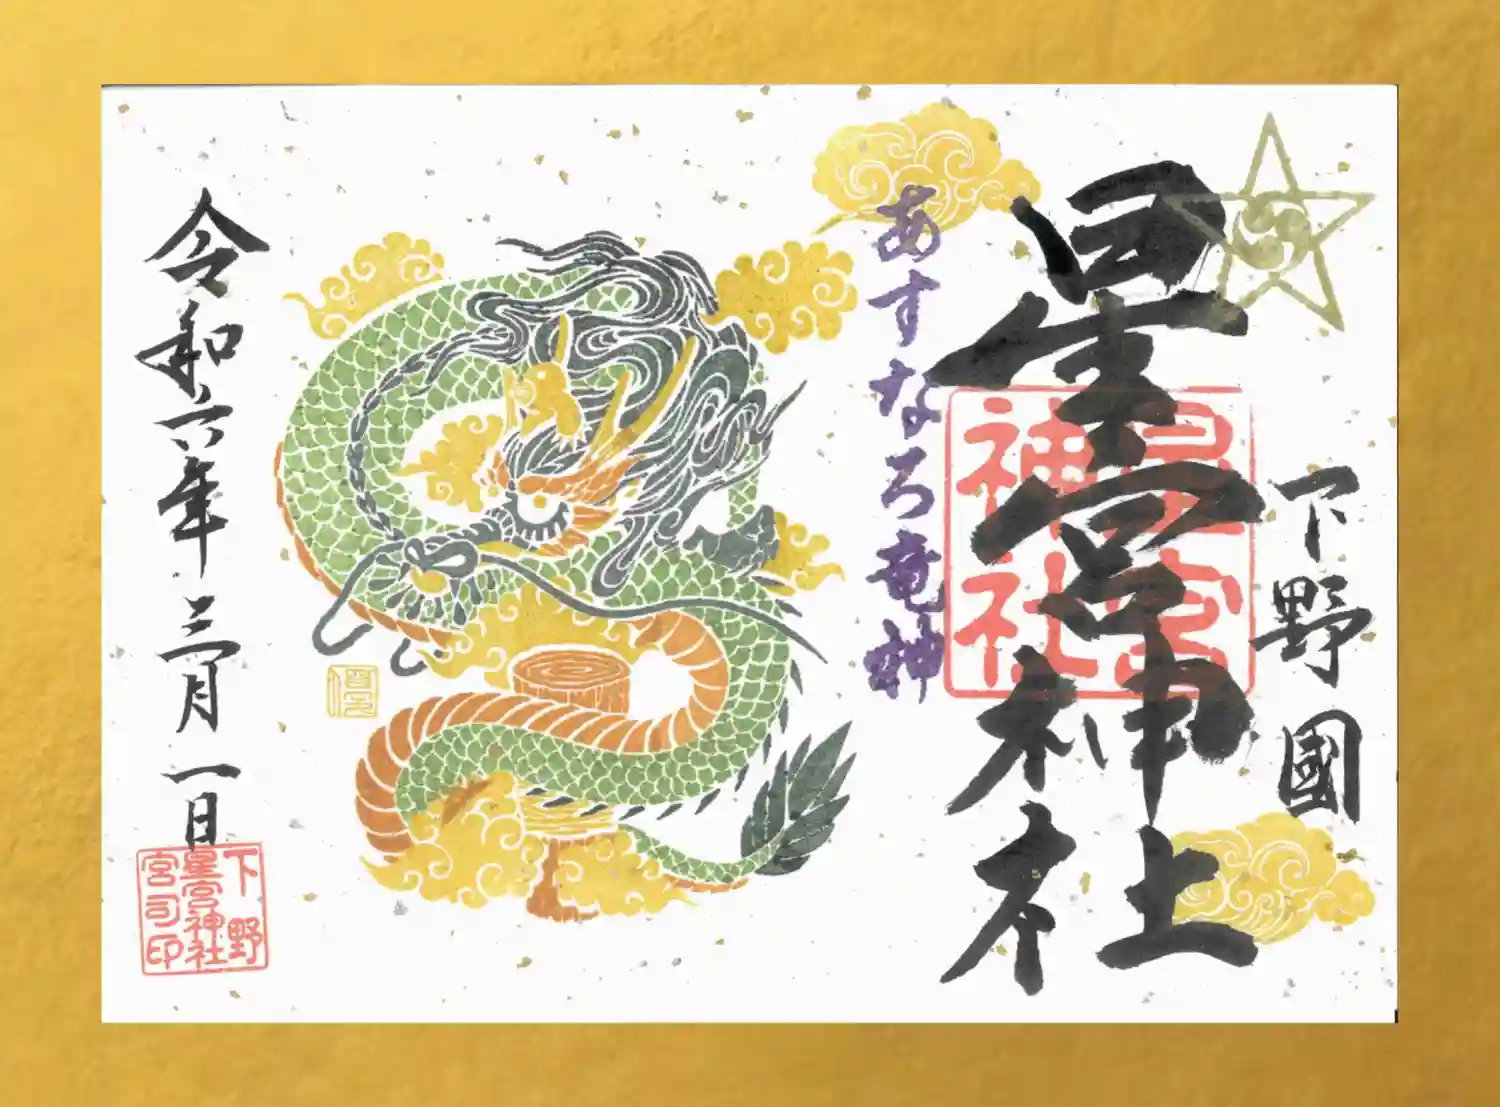 下野國
星宮神社
星宮神社
あすなろ竜神
令和六年三月一日
下野
星宮神社
宮司印